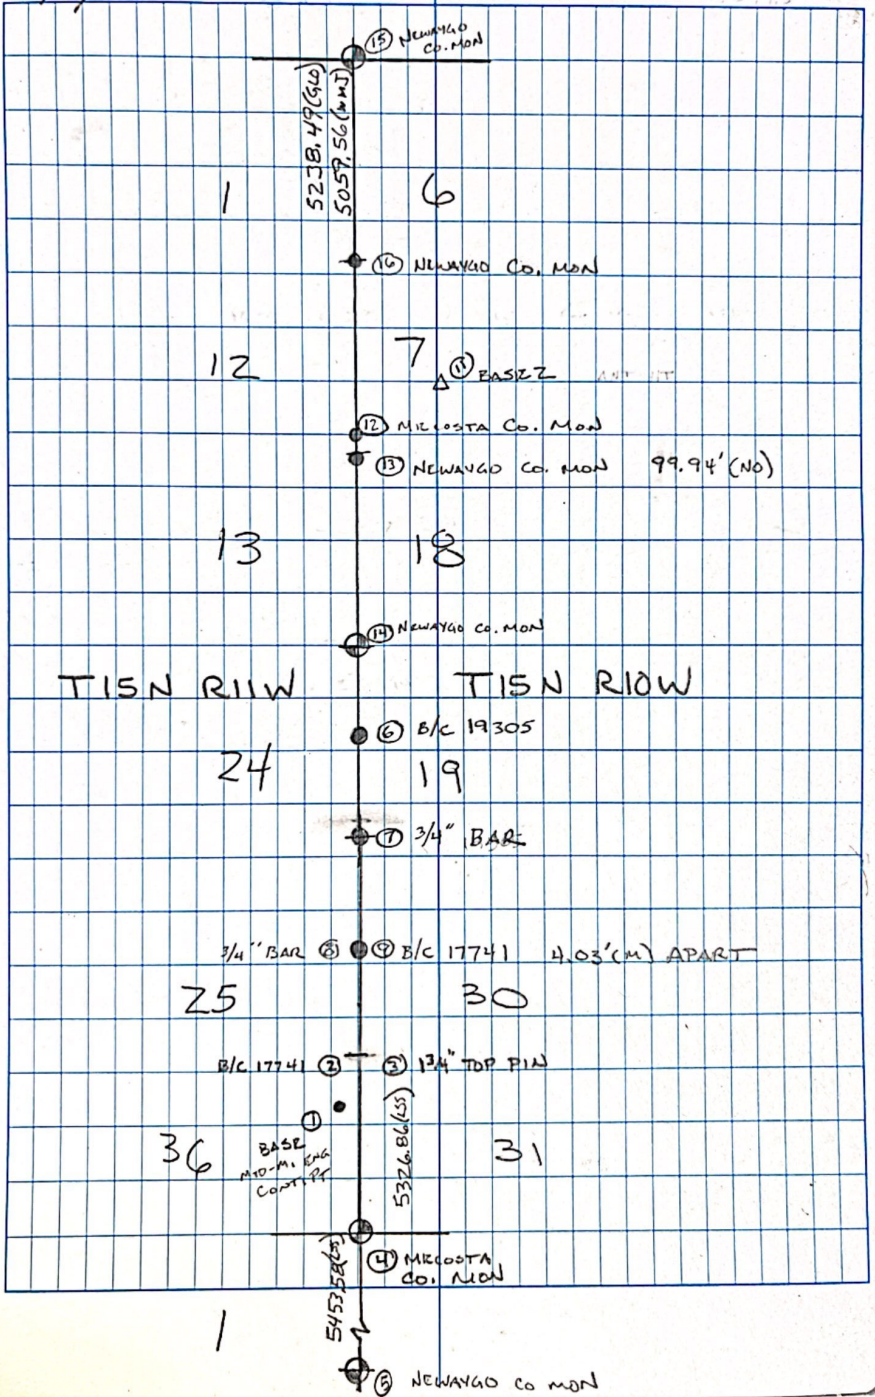 ⑮ NEWAYGO
CO. MON
5238.49 (GLO)
5059.56 (NMJ)
1 6
⑯ NEWAYGO CO. MON
12 7 ⑪ BASE 2
⑫ MECOSTA CO. MON
⑬ NEWAYGO CO. MON 99.94' (NO)
13 18
⑭ NEWAYGO CO. MON
T15N R11W T15N R10W
⑥ B/C 19305
24 19
⑦ 3/4" BAR
3/4" BAR ⑧ ⑨ B/C 17741 4.03' (M) APART
25 30
B/C 17741 ② ③ 1 3/4" TOP PIN
①
36 BASE 5326.86 (LSS) 31
MID-MI ENG
CONT. PT
④ MECOSTA
CO. MON
5453.58 (LSS)
1
⑤ NEWAYGO CO MON